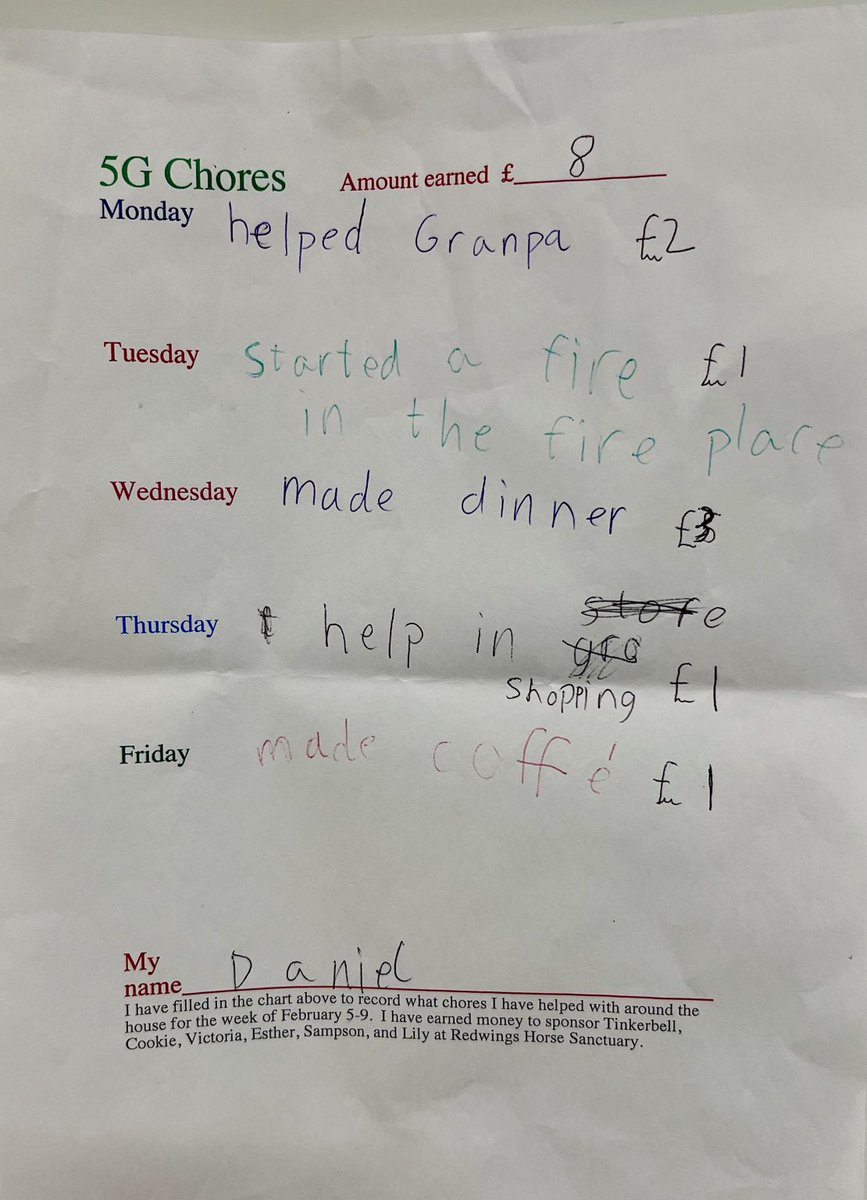 5G Chores Amount earned £ 8
Monday helped Granpa £2
Tuesday started a fire £1
in the fire place
Wednesday made dinner £3
Thursday help in store
shopping £1
Friday made coffé £1
My
name Daniel
I have filled in the chart above to record what chores I have helped with around the
house for the week of February 5-9. I have earned money to sponsor Tinkerbell,
Cookie, Victoria, Esther, Sampson, and Lily at Redwings Horse Sanctuary.